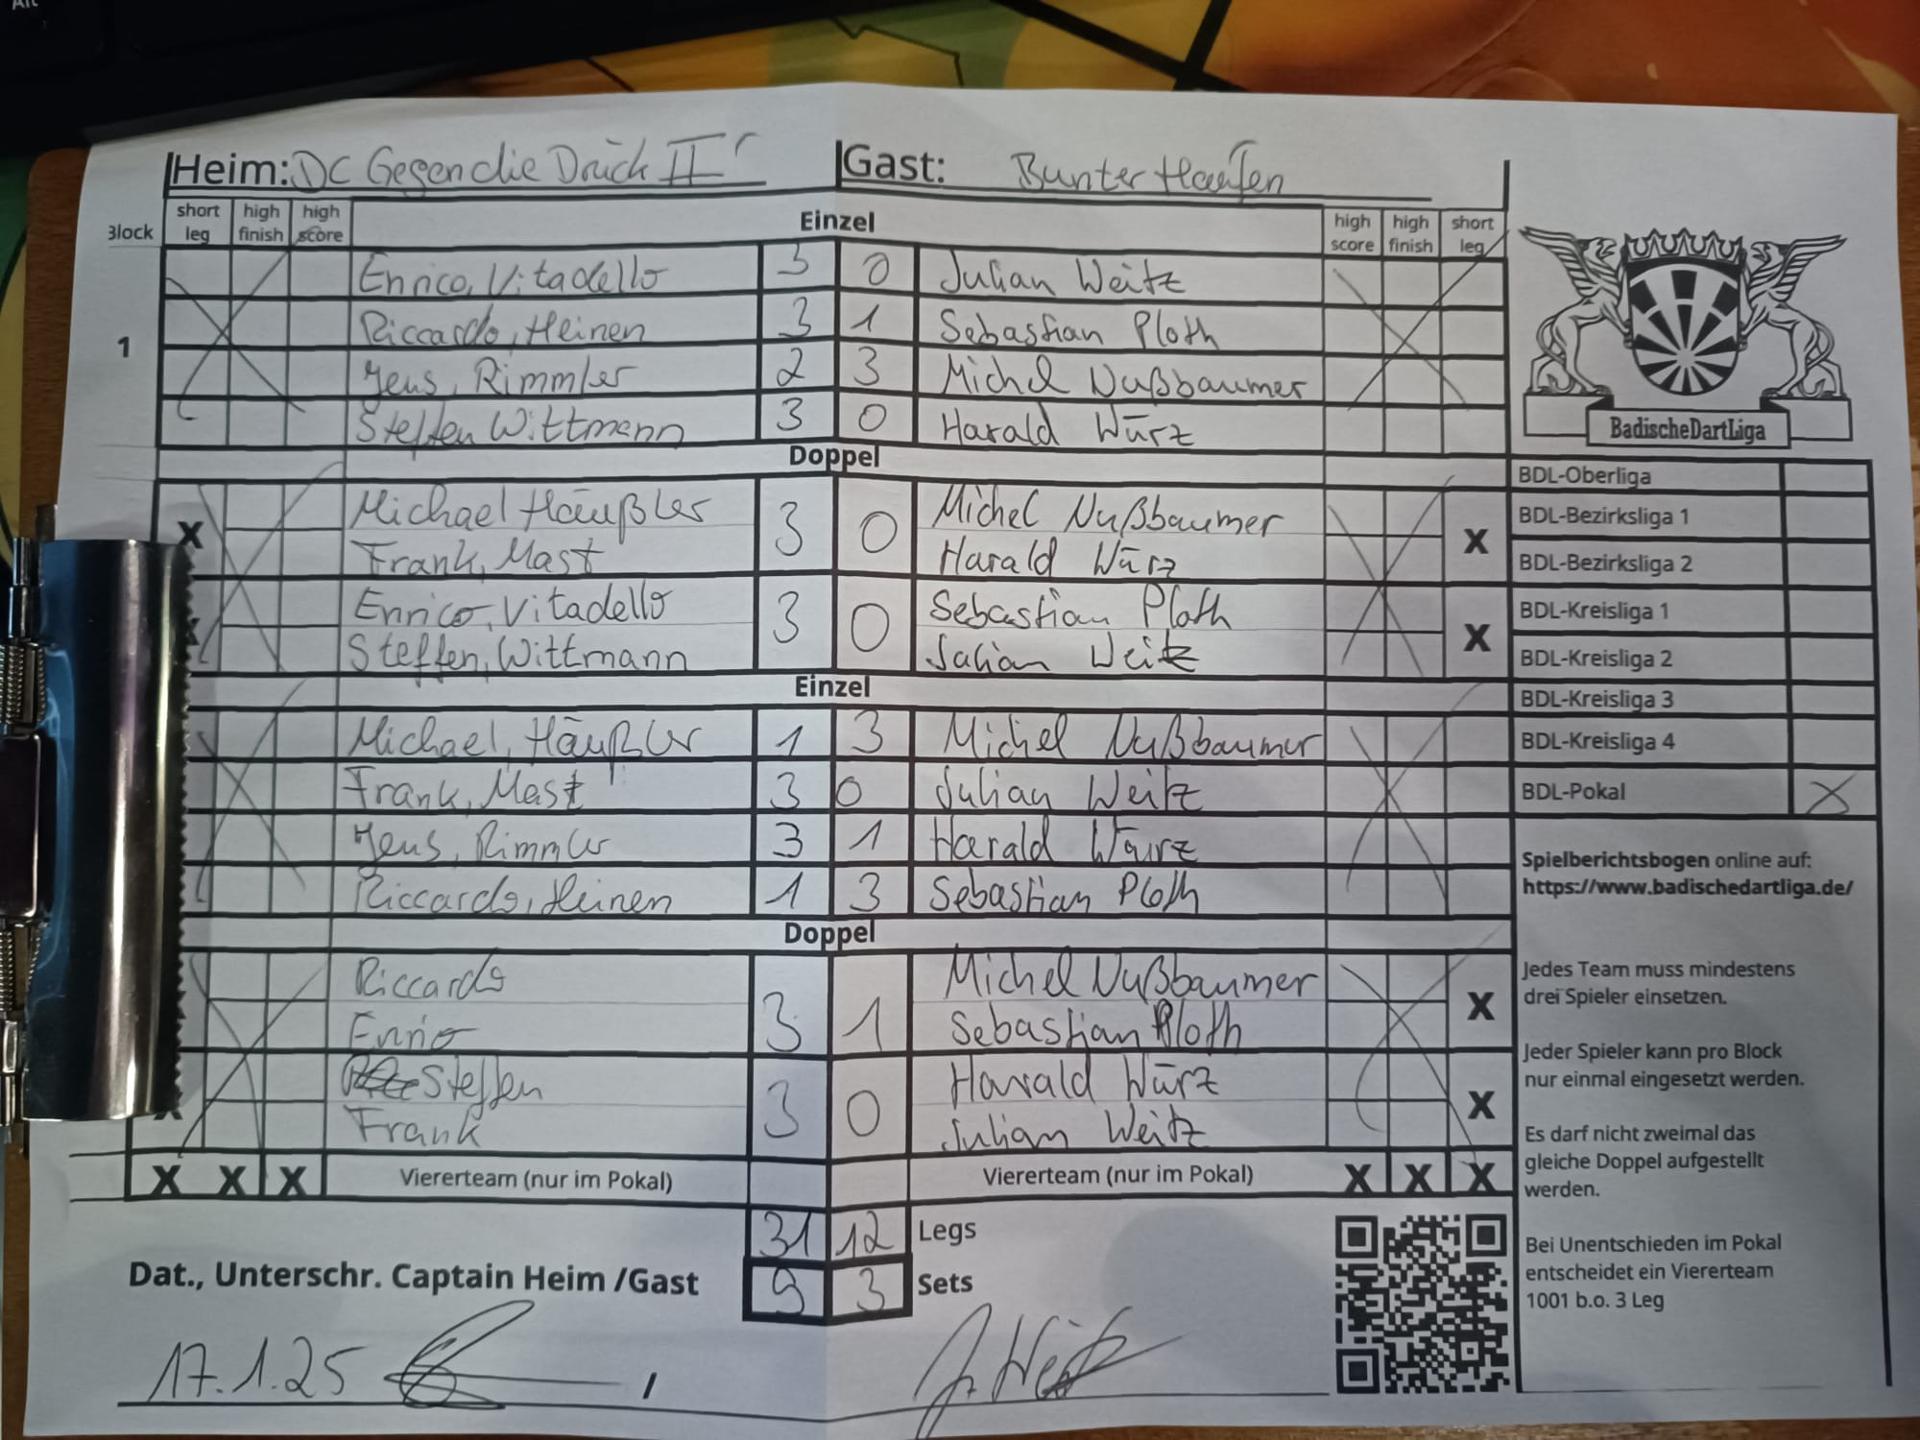 Alt
Heim: DC Gegen die Drück II Gast: Bunter Haufen
Block short leg high finish high score Einzel high score high finish short leg
1
Enrico, Vitadello 3 0 Julian Weitz
Riccardo, Heinen 3 1 Sebastian Ploth
Jens, Rimmler 2 3 Michel Nußbaumer
Steffen Wittmann 3 0 Harald Würz
BadischeDartLiga
Doppel
Michael Häußler 3 0 Michel Nußbaumer
X Frank, Mast Harald Würz X
Enrico, Vitadello 3 0 Sebastian Ploth
Steffen, Wittmann Julian Weitz X
Einzel
Michael, Häußler 1 3 Michel Nußbaumer
Frank, Mast 3 0 Julian Weitz
Jens, Rimmler 3 1 Harald Würz
Riccardo, Heinen 1 3 Sebastian Ploth
Doppel
Riccardo 3 1 Michel Nußbaumer
Enrico Sebastian Ploth X
Steffen 3 0 Harald Würz
Frank Julian Weitz X
X X X Viererteam (nur im Pokal) Viererteam (nur im Pokal) X X X
31 12 Legs
9 3 Sets
Dat., Unterschr. Captain Heim /Gast
17.1.25 / J. Weitz
BDL-Oberliga
BDL-Bezirksliga 1
BDL-Bezirksliga 2
BDL-Kreisliga 1
BDL-Kreisliga 2
BDL-Kreisliga 3
BDL-Kreisliga 4
BDL-Pokal X
Spielberichtsbogen online auf:
https://www.badischedartliga.de/
Jedes Team muss mindestens
drei Spieler einsetzen.
Jeder Spieler kann pro Block
nur einmal eingesetzt werden.
Es darf nicht zweimal das
gleiche Doppel aufgestellt
werden.
Bei Unentschieden im Pokal
entscheidet ein Viererteam
1001 b.o. 3 Leg